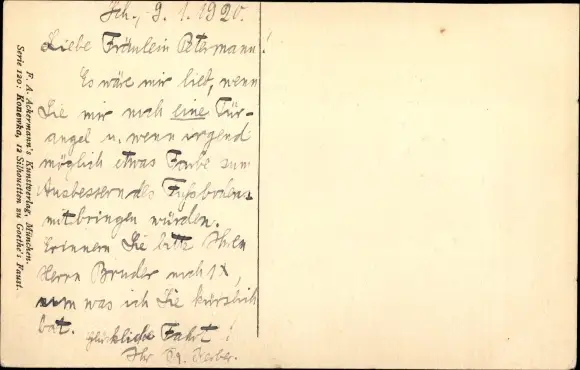 Sch., 9. 1. 1920.
Liebe Fräulein Petermann!
Es wäre mir lieb, wenn
Sie mir noch eine Tür-
angel u. wenn irgend
möglich etwas Farbe zum
Ausbessern des Fußbodens
mitbringen würden.
Erinnern Sie bitte Ihren
Herrn Bruder
was ich Sie kürzlich
bat.
glückliche Fahrt!
Ihr
F. A. Ackermann's Kunstverlag, München.
Serie 120: Konewka, 12 Silhouetten zu Goethe's Faust.